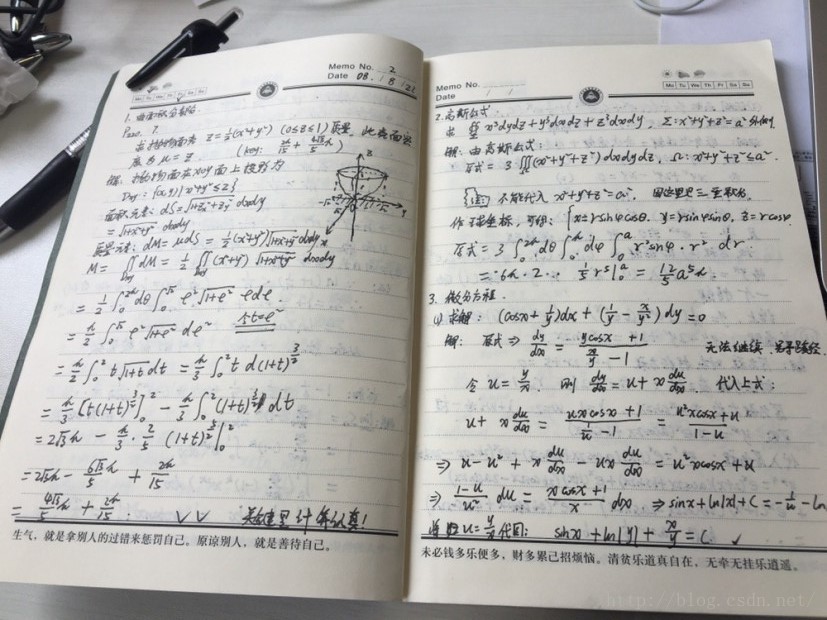 Memo No. 2
Date 08.18.
Mo Tu We Th Fr Sa Su
1. 曲面积分
P220. 7.
求抛物面壳 z=½(x²+y²) (0≤z≤1) 质量, 此壳面密
度为 μ=z.
解: 抛物面在xoy面上投影为
Dxy: {(x,y)|x²+y²≤2}
面积元素: dS=√(1+Zx²+Zy²) dxdy
=√(1+x²+y²) dxdy
质量元素: dM=μdS=½(x²+y²)√(1+x²+y²) dxdy
M=∬dM=½∬(x²+y²)√(1+x²+y²) dxdy
=½∫₀^2π dθ∫₀^√2 ρ²√(1+ρ²) ρdρ
=π/2 ∫₀^√2 ρ²√(1+ρ²) dρ² 令t=ρ²
=π/2 ∫₀² t√(1+t) dt = π/3 ∫₀² t d(1+t)^3/2
=π/3 [t(1+t)^3/2]₀² - π/3 ∫₀² (1+t)^3/2 dt
=2√3π - π/3 · 2/5 (1+t)^5/2 |₀²
=2√3π - 6√3π/5 + 2π/15
=4√3π/5 + 2π/15.
生气，就是拿别人的过错来惩罚自己。原谅别人，就是善待自己。
Memo No.
Date / /
Mo Tu We Th Fr Sa Su
2. 高斯公式
求 ∯ x³dydz+y³dxdz+z³dxdy, Σ: x²+y²+z²=a² 外侧
解: 由高斯公式:
原式=3∭(x²+y²+z²)dxdydz, Ω: x²+y²+z²≤a².
不能代入 x²+y²+z²=a², 因这里是三重积分.
作球坐标, 可得: {x=rsinφcosθ, y=rsinφsinθ, z=rcosφ.
原式=3∫₀^2π dθ∫₀^π dφ∫₀^a r²sinφ·r² dr
=6π·2·1/5 r⁵|₀^a = 12/5 a⁵π
3. 微分方程.
(1) 求解: (cosx+1/y)dx + (1/y - x/y²)dy=0
解: 原式⇒ dy/dx = (ycosx+1)/(x/y - 1) 无法继续,
令 u=y/x. 则 dy/dx=u+x du/dx. 代入上式:
u+x du/dx = (uxcosx+1)/(1/u - 1) = (u²xcosx+u)/(1-u)
⇒ u-u²+x du/dx - ux du/dx = u²xcosx+u
⇒ (1-u)/u² du = (xcosx+1)/x dx ⇒ sinx+ln|x|+C=-1/u-ln
将 u=y/x 代回: sinx+ln|y|+x/y=C
未必钱多乐便多，财多累己招烦恼。清贫乐道真自在，无牵无挂乐逍遥。
http://blog.csdn.net/